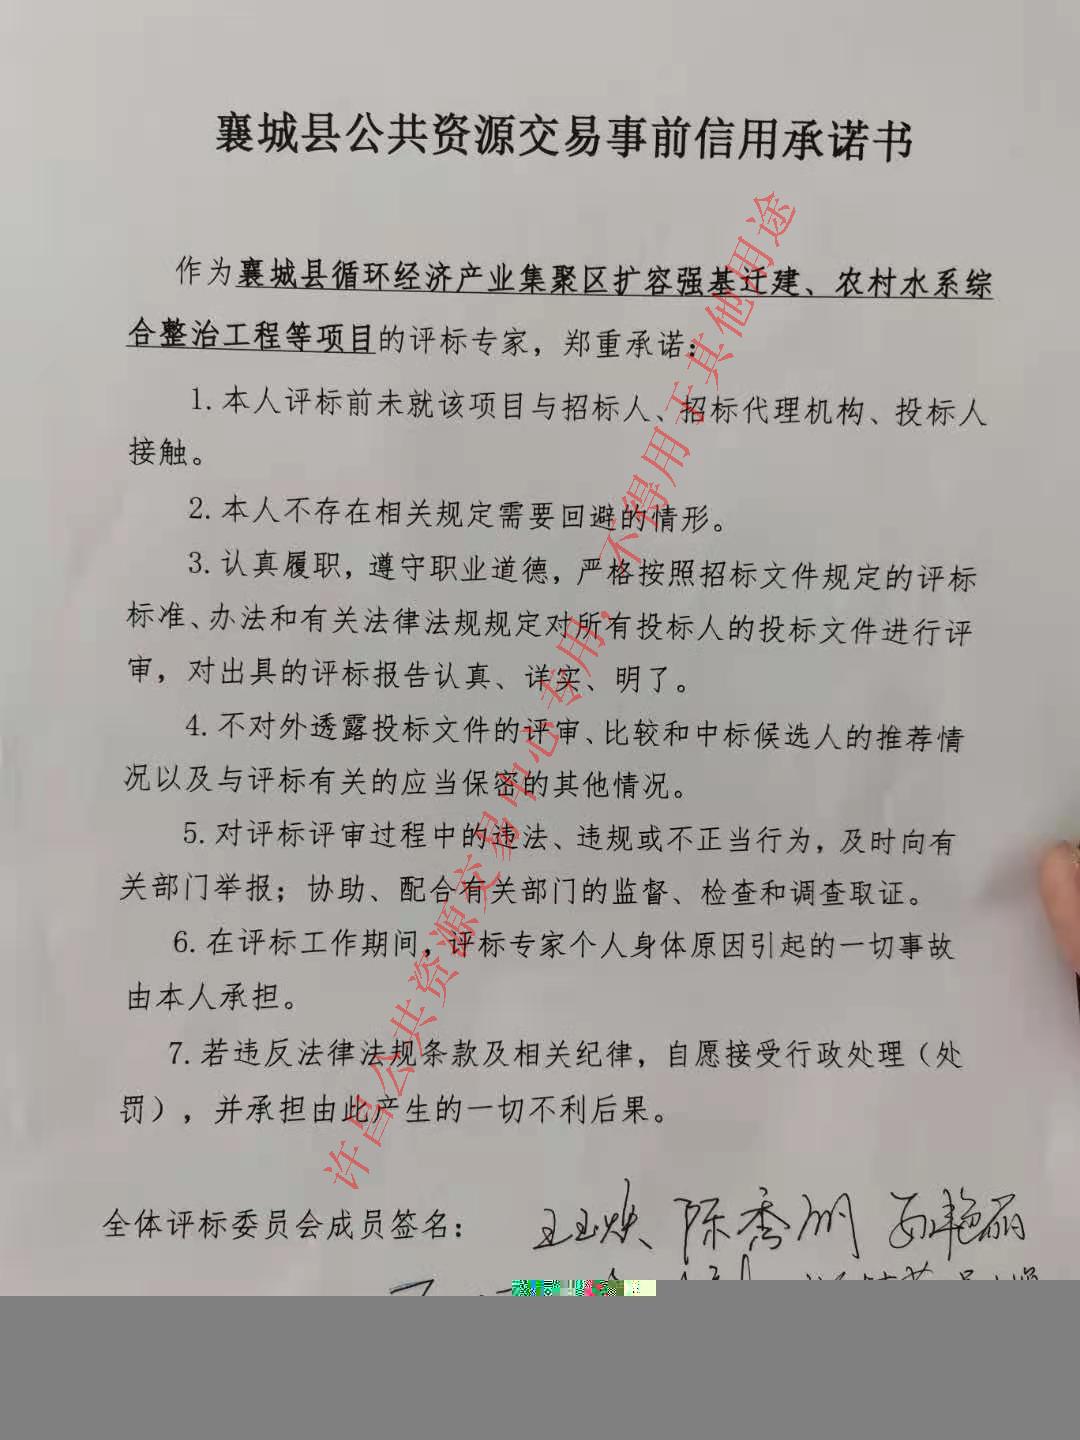 襄城县公共资源交易事前信用承诺书
作为襄城县循环经济产业集聚区扩容强基迁建、农村水系综
合整治工程等项目的评标专家，郑重承诺：
1.本人评标前未就该项目与招标人、招标代理机构、投标人
接触。
2.本人不存在相关规定需要回避的情形。
3.认真履职，遵守职业道德，严格按照招标文件规定的评标
标准、办法和有关法律法规规定对所有投标人的投标文件进行评
审，对出具的评标报告认真、详实、明了。
4.不对外透露投标文件的评审、比较和中标候选人的推荐情
况以及与评标有关的应当保密的其他情况。
5.对评标评审过程中的违法、违规或不正当行为，及时向有
关部门举报；协助、配合有关部门的监督、检查和调查取证。
6.在评标工作期间，评标专家个人身体原因引起的一切事故
由本人承担。
7.若违反法律法规条款及相关纪律，自愿接受行政处理（处
罚），并承担由此产生的一切不利后果。
全体评标委员会成员签名：
许昌公共资源交易中心专用，不得用于其他用途